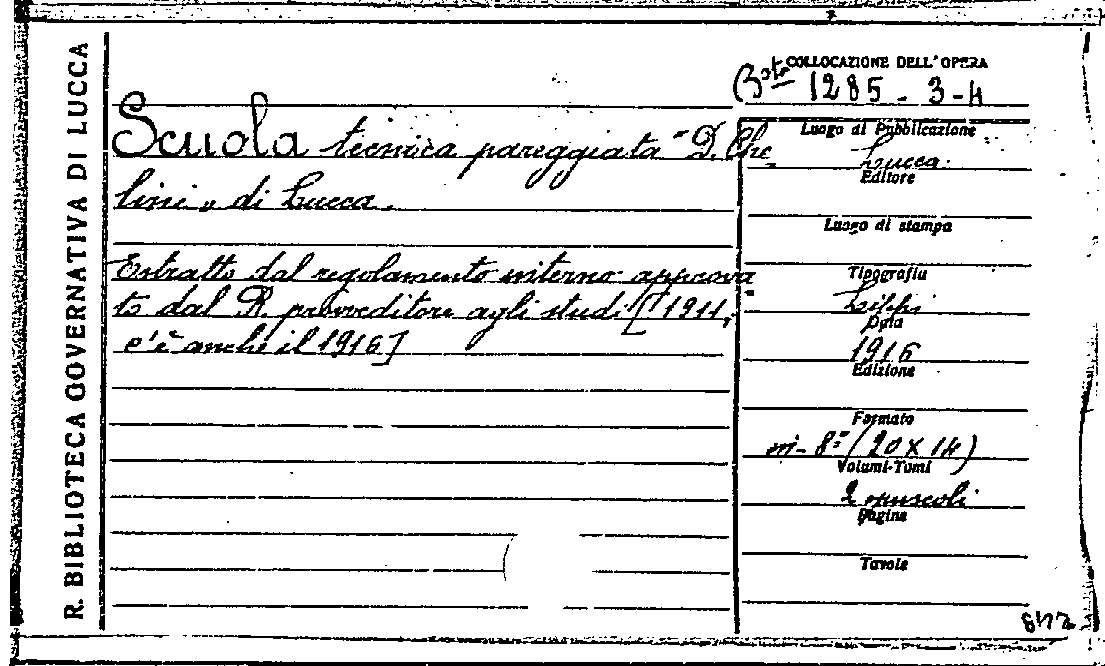 R. BIBLIOTECA GOVERNATIVA DI LUCCA
COLLOCAZIONE DELL'OPERA
Bsta 1285 - 3-4
Scuola tecnica pareggiata "D. Che
lini" di Lucca.
Estratto dal regolamento interno approva
to dal R. provveditore agli studi [1911,
c'è anche il 1916]
Luogo di Pubblicazione
Lucca
Editore
Luogo di stampa
Tipografia
Lippi
Data
1916
Edizione
Formato
in-8° (20 X 14)
Volumi-Tomi
2 opuscoli
Pagine
Tavole